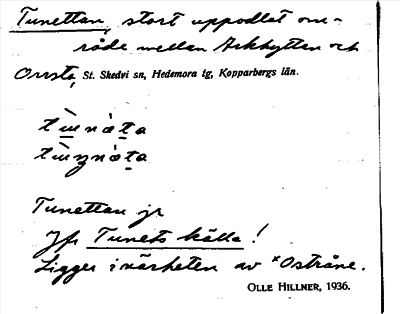 Tunettan, stort uppodlat om-
råde mellan Arkhyttan och
Onsta, St. Skedvi sn, Hedemora tg, Kopparbergs län.
Tunettan jr
Jfr Tunets källa!
Ligger i närheten av ˣOsträne.
OLLE HILLNER, 1936.